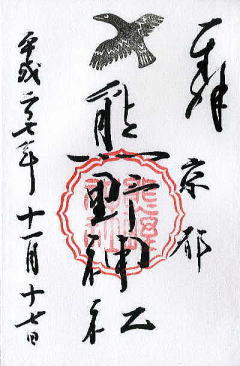 奉拝
京都
熊野神社
平成二十七年十一月十七日